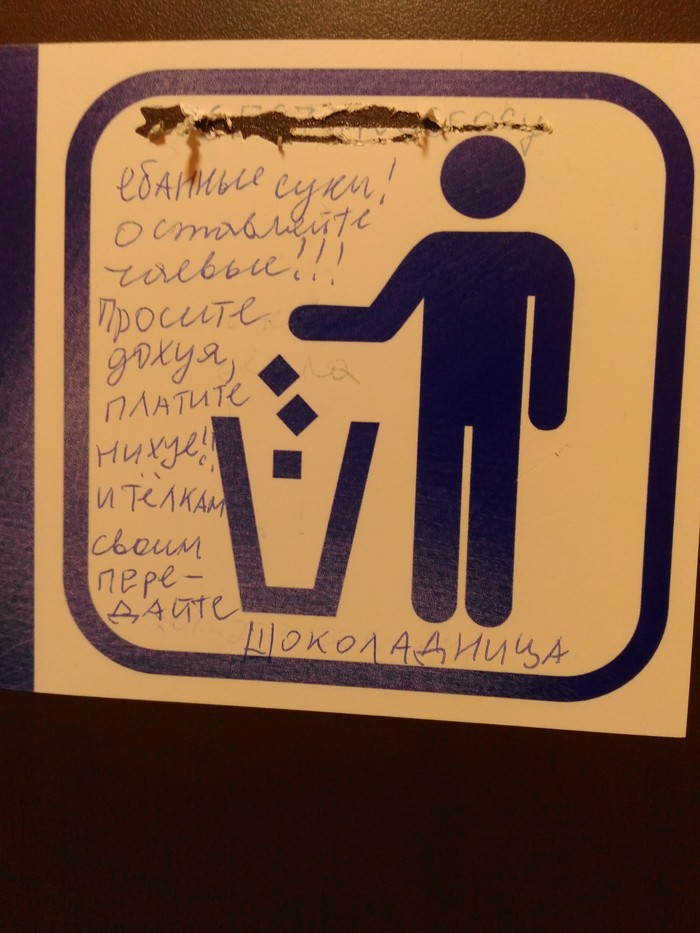 ебанные суки!
оставляйте
чаевые!!!
Просите
дохуя,
платите
нихуе!!
и тёлкам
своим
пере-
дайте
Шоколадница